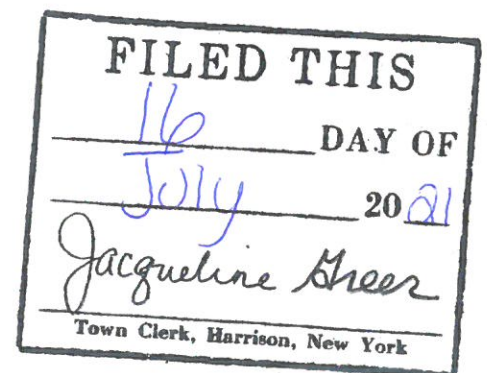 FILED THIS
16 DAY OF
July 2021
Jacqueline Greer
Town Clerk, Harrison, New York